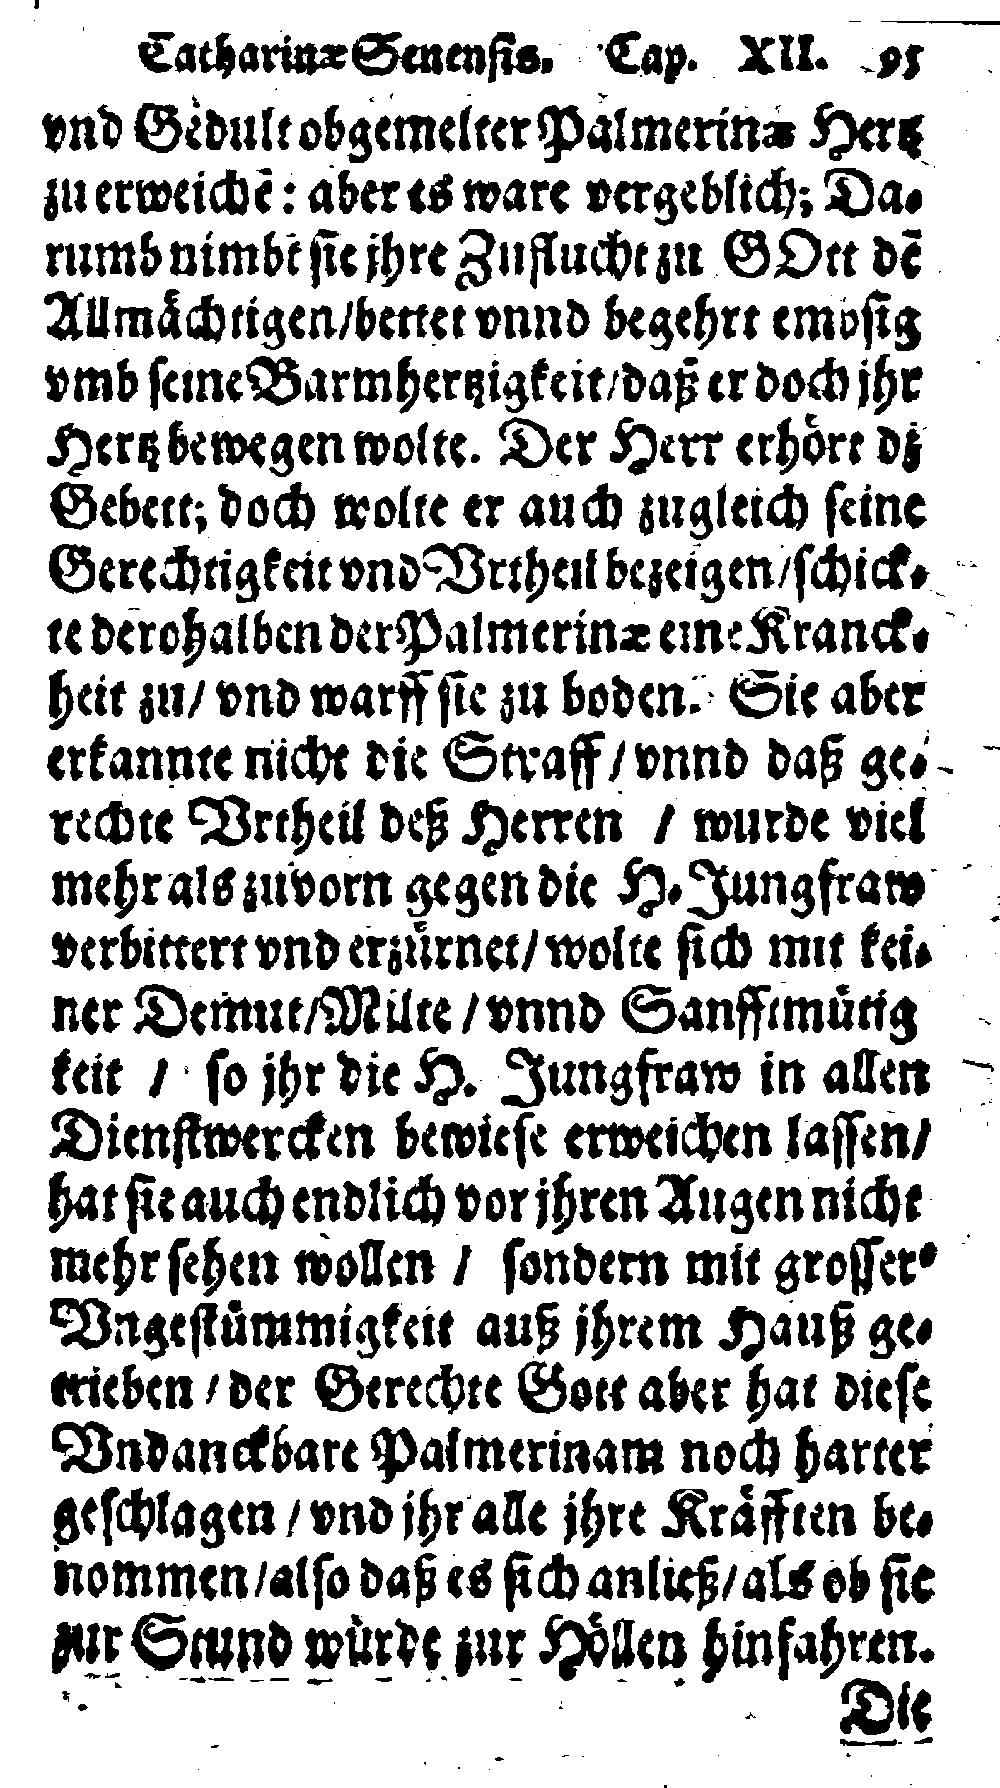 Catharinæ Senensis. Cap. XII. 95
vnd Gedult obgemelter Palmerinæ Hertz
zu erweichē: aber es ware vergeblich; Da-
rumb nimbt sie jhre Zuflucht zu GOtt dē
Allmächtigen/bettet vnnd begehrt embsig
vmb seine Barmhertzigkeit/daß er doch jhr
Hertz bewegen wolte. Der Herr erhört dz
Gebett; doch wolte er auch zugleich seine
Gerechtigkeit vnd Vrtheil bezeigen/schick-
te derohalben der Palmerinæ eine Kranck-
heit zu/ vnd warff sie zu boden. Sie aber
erkannte nicht die Straff/vnnd daß ge-
rechte Vrtheil deß Herren / wurde viel
mehr als zuvorn gegen die H. Jungfraw
verbittert vnd erzürnet/wolte sich mit kei-
ner Demut/Milte / vnnd Sanfftmütig
keit / so jhr die H. Jungfraw in allen
Dienstwercken bewiese erweichen lassen/
hat sie auch endlich vor jhren Augen nicht
mehr sehen wollen / sondern mit grosser
Vngestümmigkeit auß jhrem Hauß ge-
trieben / der Gerechte Gott aber hat diese
Vndanckbare Palmerinam noch harter
geschlagen / vnd jhr alle jhre Kräfften be-
nommen/also daß es sich anließ/als ob sie
zur Stund würde zur Höllen hinfahren.
Die